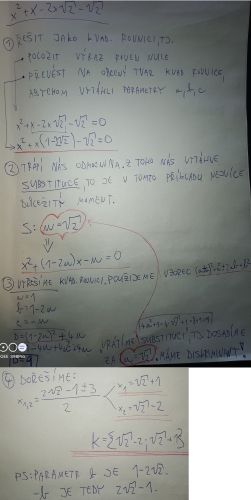 x² + x - 2x√2 - √2
① ŘEŠIT JAKO KVAD. ROVNICI, TJ.
• POLOŽIT VÝRAZ ROVEN NULE
• PŘEVÉST NA OBECNÝ TVAR KVAD. ROVNICE,
ABYCHOM VYTÁHLI PARAMETRY a, b, c
x² + x - 2x√2 - √2 = 0
x² + x(1 - 2√2) - √2 = 0
② TRÁPÍ NÁS ODMOCNINA. Z TOHO NÁS VYTÁHNE
SUBSTITUCE. TO JE V TOMTO PŘÍKLADU NEJVÍCE
DŮLEŽITÝ MOMENT.
S: u = √2
x² + (1 - 2u)x - u = 0
③ VYŘEŠÍME KVAD. ROVNICI. POUŽIJEME VZOREC
a = 1
b = 1 - 2u
c = -u
VRÁTÍME SUBSTITUCI, TJ. DOSADÍME
ZA u = √2. MÁME DISKRIMINANT!
D = 9
④ DOŘEŠÍME:
x₁,₂ = (2√2 - 1 ± 3) / 2
x₁ = √2 + 1
x₂ = √2 - 2
K = {√2 - 2, √2 + 1}
PS: PARAMETR b JE 1 - 2√2.
-b JE TEDY 2√2 - 1.